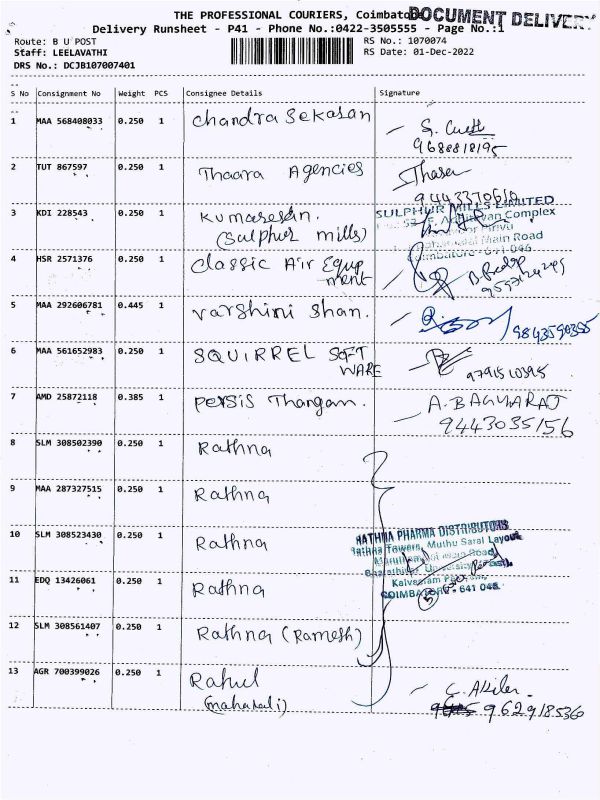 THE PROFESSIONAL COURIERS, Coimbatore
DOCUMENT DELIVERY
Delivery Runsheet - P41 - Phone No.:0422-3505555 - Page No.:1
Route: B U POST
RS No.: 1070074
Staff: LEELAVATHI
RS Date: 01-Dec-2022
DRS No.: DCJB107007401
S No Consignment No Weight PCS Consignee Details Signature
1 MAA 568408033 0.250 1 Chandra Sekasan
9688818195
2 TUT 867597 0.250 1 Thaara Agencies
Thasa
9443370610
3 KDI 228543 0.250 1 Kumaresan.
(Sulphur mills)
SULPHUR MILLS LIMITED
Complex
Main Road
Coimbatore - 641 046
4 HSR 2571376 0.250 1 Classic Air Equip
ment
5 MAA 292606781 0.445 1 Varshini Shan.
9843590355
6 MAA 561652983 0.250 1 SQUIRREL SOFT
WARE
9791510395
7 AMD 25872118 0.385 1 Persis Thangam.
A. BAGYARAJ
9443035156
8 SLM 308502390 0.250 1 Rathna
9 MAA 287327515 0.250 1 Rathna
10 SLM 308523430 0.250 1 Rathna
RATHNA PHARMA DISTRIBUTORS
Rathna Towers, Muthu Saral Layout
Main Road
11 EDQ 13426061 0.250 1 Rathna
COIMBATORE - 641 046
12 SLM 308561407 0.250 1 Rathna (Ramesh)
13 AGR 700399026 0.250 1 Rahul
(maharali)
C. Akilan
9629185360